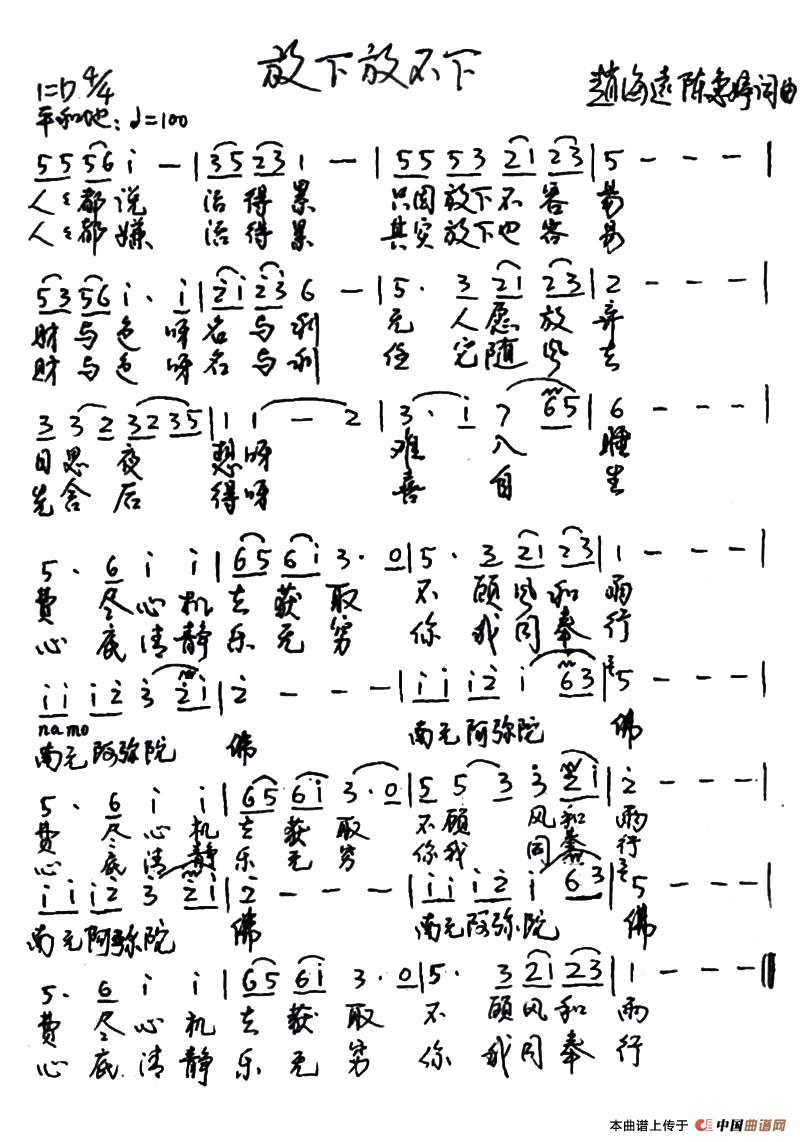 放下放不下
1=D 4/4
赵海远 陈惠婷词曲
平和地：♩=100
5 5 5 6 i — | 3 5 2 3 1 — | 5 5 5 3 2 1 2 3 | 5 — — — |
人人都说 活得累 只因放下不容易
人人都嫌 活得累 其实放下也容易
5 3 5 6 i · i | 2 i 2 3 6 — | 5 · 3 2 1 2 3 | 2 — — — |
财与色呀名与利 无人愿放弃
财与色呀名与利 任它随风去
3 3 2 3 2 3 5 | 1 1 — 2 | 3 · i 7 6 5 | 6 — — — |
日思夜 想呀 难入睡
先舍后 得呀 喜自生
5 · 6 i i | 6 5 6 i 3 · 0 | 5 · 3 2 1 2 3 | 1 — — — |
费尽心机去获取 不顾风和雨
心底清静乐无穷 你我同奉行
i i i 2 3 2 i | 2 — — — | i i i 2 i 6 3 | 5 — — — |
na mo
南无阿弥陀 佛 南无阿弥陀 佛
5 · 6 i i | 6 5 6 i 3 · 0 | 5 5 3 3 2 i | 2 — — — |
费尽心机去获取 不顾风和雨
心底清静乐无穷 你我同奉行
i i i 2 3 2 i | 2 — — — | i i i 2 i 6 3 | 5 — — — |
南无阿弥陀 佛 南无阿弥陀 佛
5 · 6 i i | 6 5 6 i 3 · 0 | 5 · 3 2 1 2 3 | 1 — — — ‖
费尽心机去获取 不顾风和雨
心底清静乐无穷 你我同奉行
本曲谱上传于 中国曲谱网